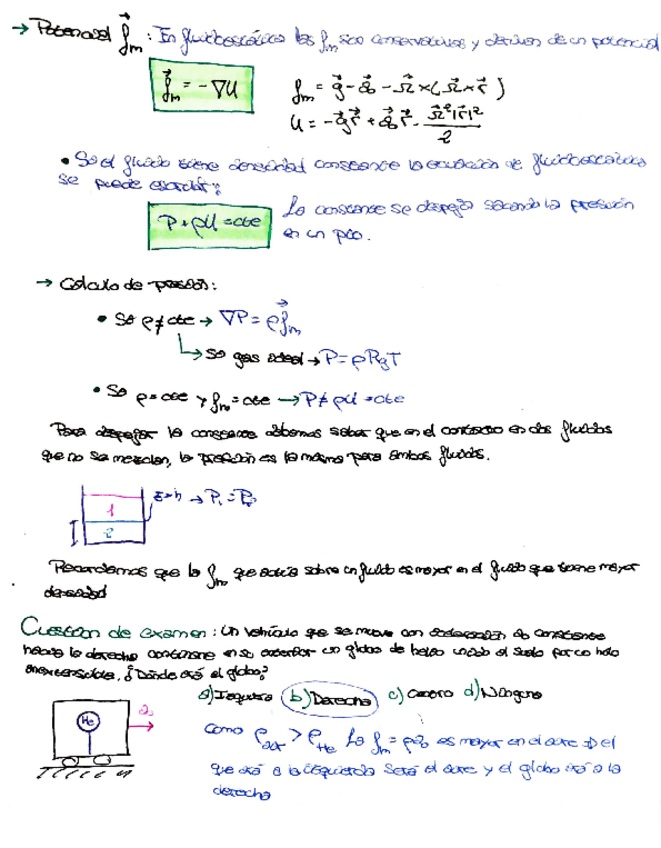 → Potencial f⃗m: En fluidoestática las f⃗m son conservativas y derivan de un potencial
f⃗m = -∇U    f⃗m = g⃗ - a⃗o - Ω⃗×(Ω⃗×r⃗)
U = -g⃗r⃗ + a⃗o r⃗ - Ω⃗²|r⃗|²/2
• Si el fluido tiene densidad constante la ecuación de fluidoestática
se puede escribir:
P + ρU = cte    La constante se despeja sacando la presión
en un pto.
→ Cálculo de presión:
• Si ρ ≠ cte → ∇P = ρf⃗m
↳ Si gas ideal → P = ρRgT
• Si ρ = cte y f⃗m = cte → P + ρU = cte
Para despejar la constante debemos saber que en el contacto en dos fluidos
que no se mezclan, la presión es la misma para ambos fluidos.
1    z=h → P₁ = P₂
2
Recordamos que la f⃗m que actúa sobre un fluido es mayor en el fluido que tiene mayor
densidad
Cuestión de examen: Un vehículo que se mueve con aceleración ao constante
hacia la derecha contiene en su interior un globo de helio unido al suelo por un hilo
inextensible, ¿Dónde irá el globo?
a) Izquierda b) Derecha c) Centro d) Ninguno
He    a⃗o    Como ρair > ρHe la f⃗m = ρao es mayor en el aire ⇒ el
que irá a la izquierda será el aire y el globo irá a la
derecha